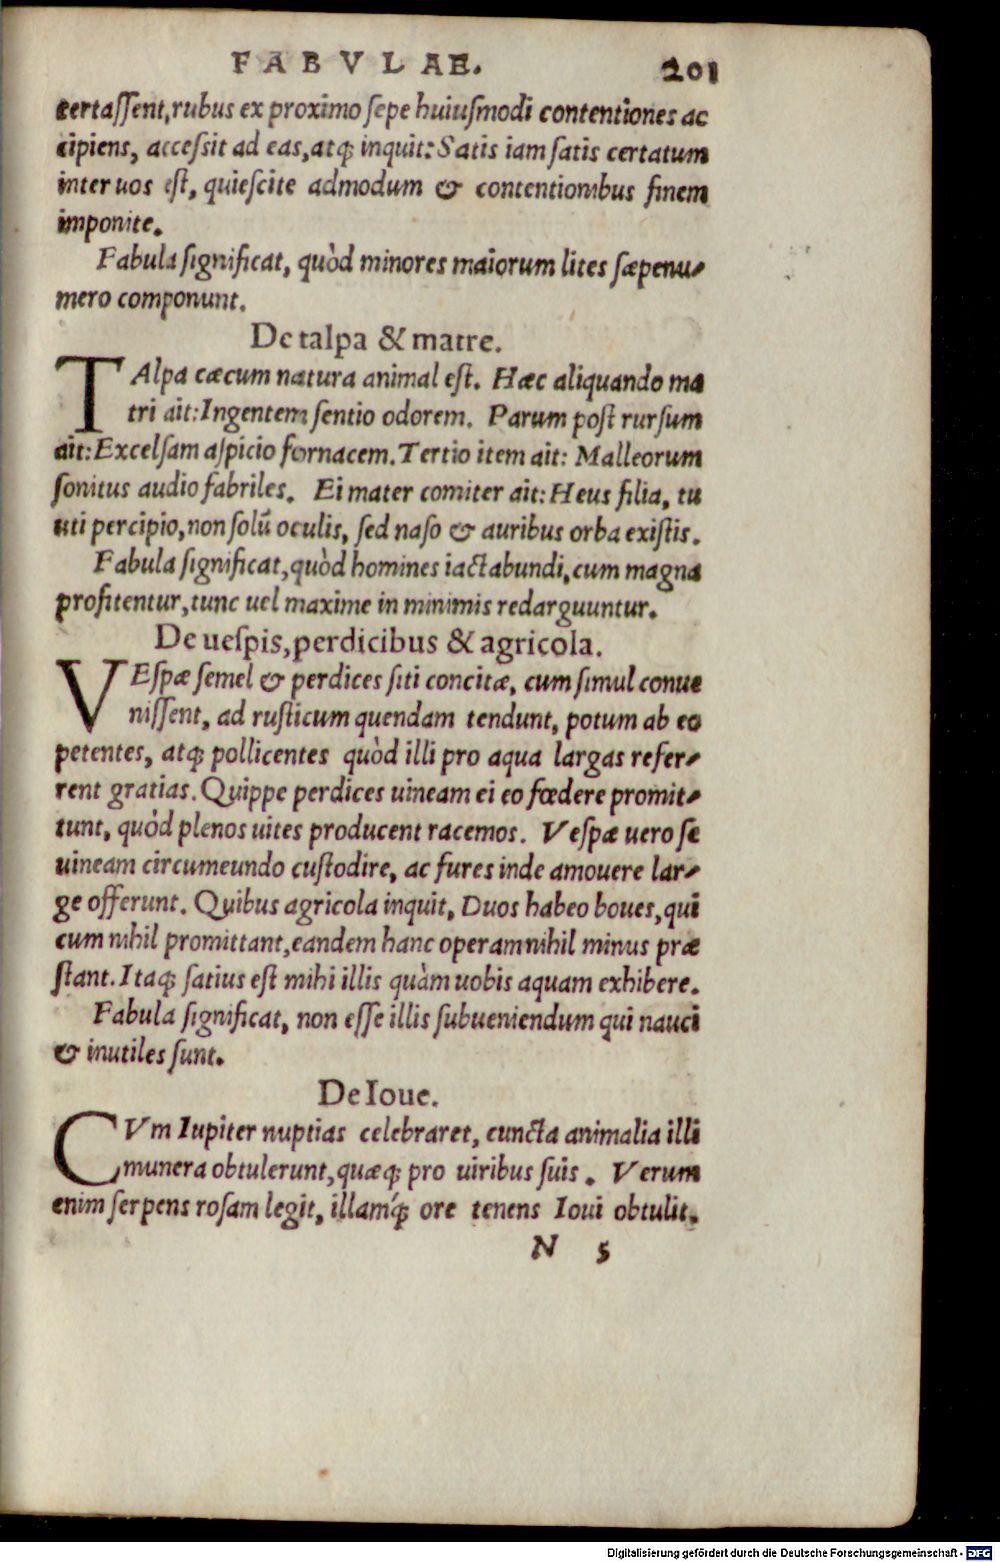 FABVLAE. 201
certaſſent, rubus ex proximo ſepe huiuſmodi contentiones ac
cipiens, acceſſit ad eas, atq; inquit: Satis iam ſatis certatum
inter uos eſt, quieſcite admodum & contentionibus finem
imponite.
Fabula ſignificat, quòd minores maiorum lites ſæpenu-
mero componunt.
De talpa & matre.
TAlpa cæcum natura animal eſt. Hæc aliquando ma
tri ait: Ingentem ſentio odorem. Parum poſt rurſum
ait: Excelſam aſpicio fornacem. Tertio item ait: Malleorum
ſonitus audio fabriles. Ei mater comiter ait: Heus filia, tu
uti percipio, non ſolũ oculis, ſed naſo & auribus orba exiſtis.
Fabula ſignificat, quòd homines iactabundi, cum magna
profitentur, tunc uel maxime in minimis redarguuntur.
De ueſpis, perdicibus & agricola.
VEſpæ ſemel & perdices ſiti concitæ, cum ſimul conue
niſſent, ad ruſticum quendam tendunt, potum ab eo
petentes, atq; pollicentes quòd illi pro aqua largas refer-
rent gratias. Quippe perdices uineam ei eo fœdere promit-
tunt, quòd plenos uites producent racemos. Veſpæ uero ſe
uineam circumeundo cuſtodire, ac fures inde amouere lar-
ge offerunt. Quibus agricola inquit, Duos habeo boues, qui
cum nihil promittant, eandem hanc operam nihil minus præ
ſtant. Itaq; ſatius eſt mihi illis quàm uobis aquam exhibere.
Fabula ſignificat, non eſſe illis ſubueniendum qui nauci
& inutiles ſunt.
De Ioue.
CVm Iupiter nuptias celebraret, cuncta animalia illi
munera obtulerunt, quæq; pro uiribus ſuis. Verum
enim ſerpens roſam legit, illamq́; ore tenens Ioui obtulit.
N 5
Digitalisierung gefördert durch die Deutsche Forschungsgemeinschaft - DFG